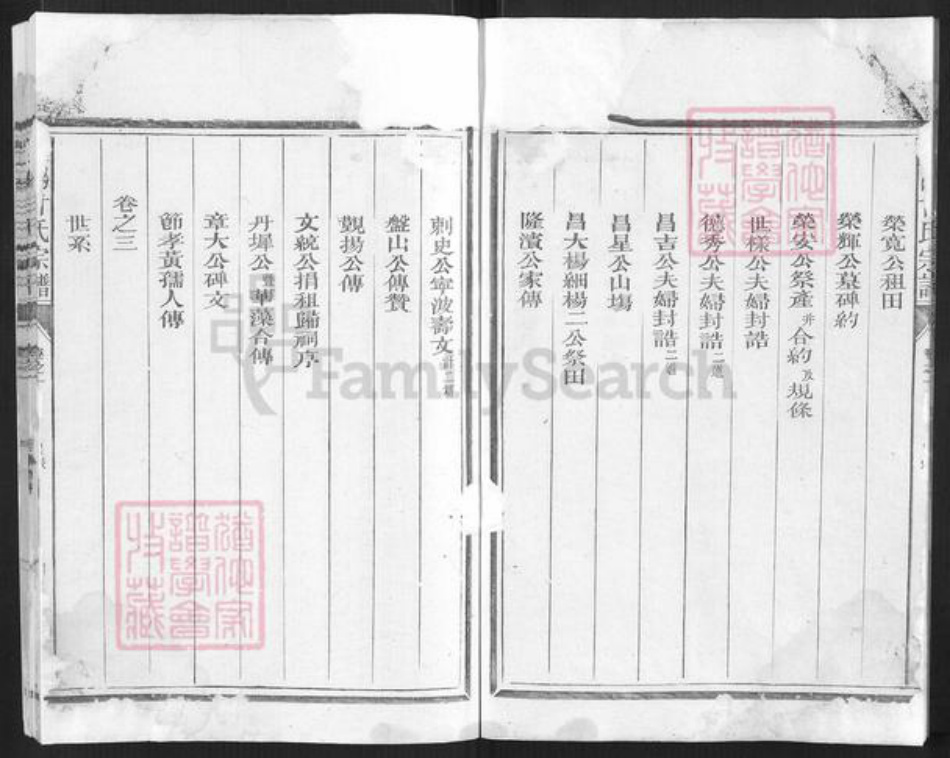 榮寬公租田
榮輝公墓碑約
榮安公祭產并合約及規條
世樣公夫婦封誥
德秀公夫婦封誥二道
昌吉公夫婦封誥二道
昌星公山塲
昌大楊細楊二公祭田
隆濱公家傳
刺史公寧波壽文計二道
盤山公傳贊
覲揚公傳
文統公捐租歸祠序
丹墀公暨華藻合傳
章大公碑文
節孝黃孺人傳
卷之三
世系
氏宗譜
FamilySearch